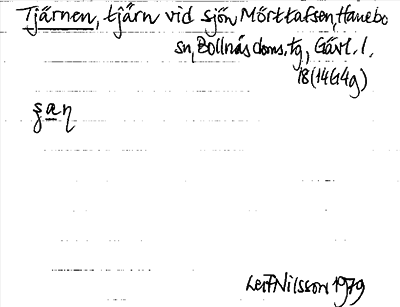 Tjärnen, tjärn vid sjön Mörttafsen, Hanebo
sn, Bollnäs doms. tg, Gävl. l.
18(14G4g)
şaƞ
Leif Nilsson 1979